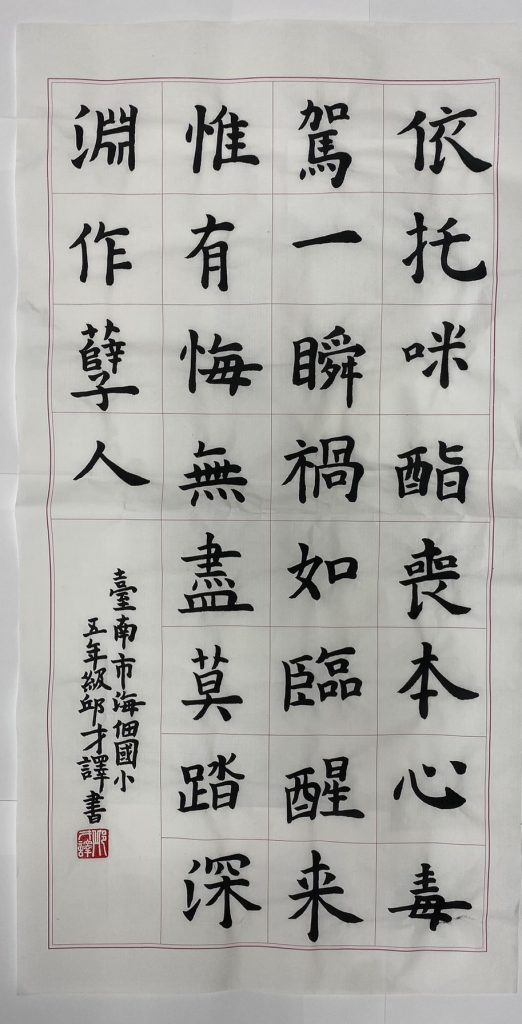 依托咪酯喪本心毒
駕一瞬禍如臨醒来
惟有悔無盡莫踏深
淵作孽人
臺南市海佃國小
五年級邱才譯書